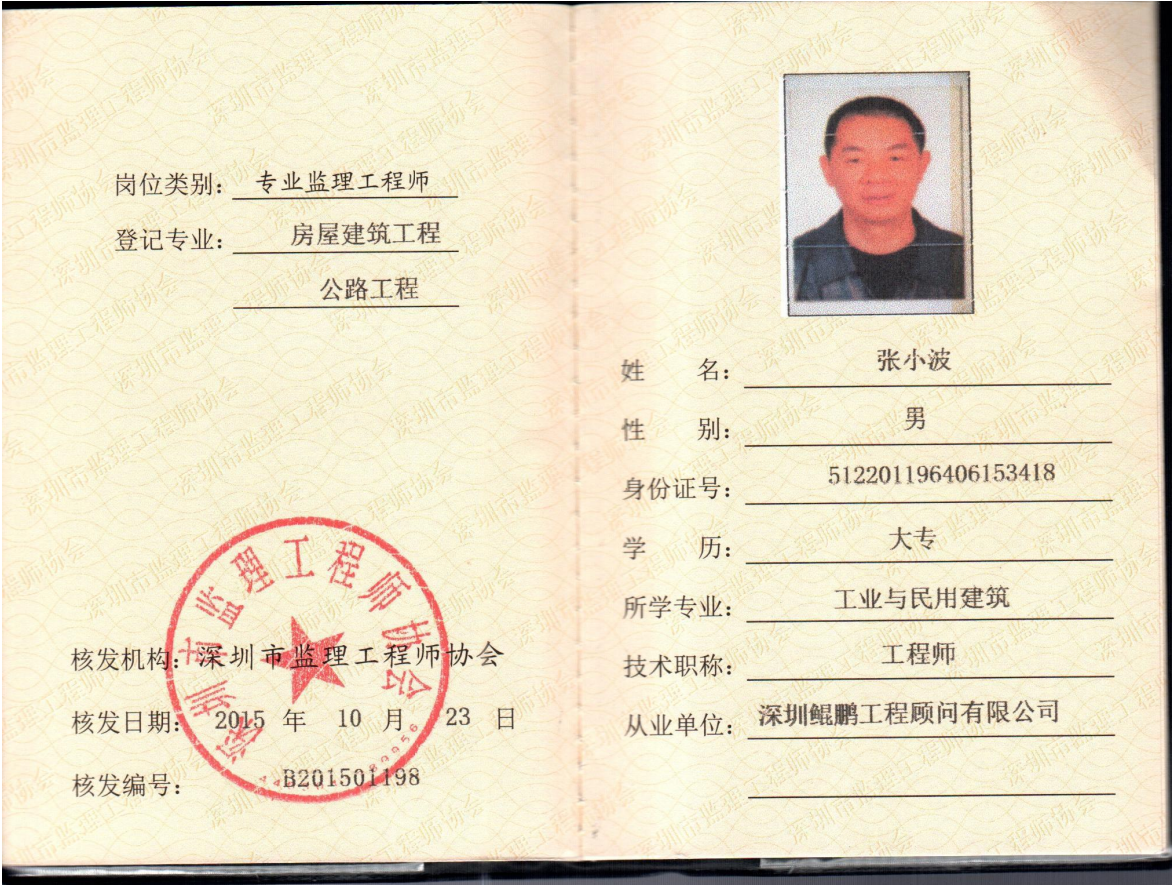 岗位类别: 专业监理工程师
登记专业: 房屋建筑工程
公路工程
深圳市监理工程师协会
核发机构: 深圳市监理工程师协会
核发日期: 2015 年 10 月 23 日
核发编号: B201501198
姓 名: 张小波
性 别: 男
身份证号: 512201196406153418
学 历: 大专
所学专业: 工业与民用建筑
技术职称: 工程师
从业单位: 深圳鲲鹏工程顾问有限公司